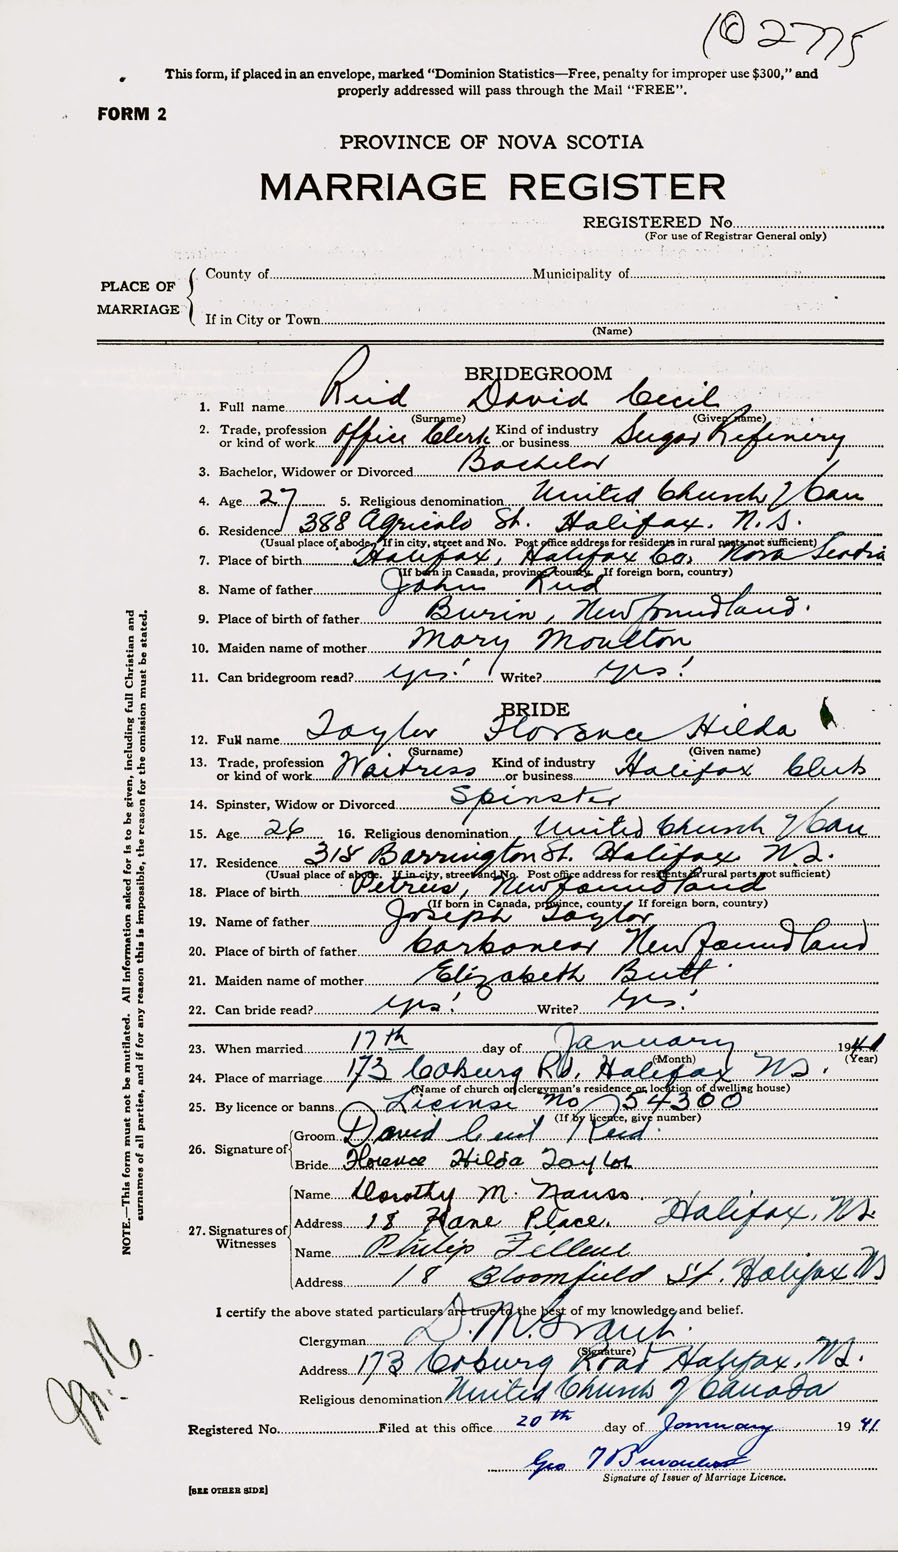 102775
This form, if placed in an envelope, marked “Dominion Statistics—Free, penalty for improper use $300,” and
properly addressed will pass through the Mail “FREE”.
FORM 2
PROVINCE OF NOVA SCOTIA
MARRIAGE REGISTER
REGISTERED No.
(For use of Registrar General only)
PLACE OF MARRIAGE
County of Municipality of
If in City or Town
(Name)
BRIDEGROOM
1. Full name Reid David Cecil
(Surname) (Given name)
2. Trade, profession or kind of work Office Clerk Kind of industry or business Sugar Refinery
3. Bachelor, Widower or Divorced Bachelor
4. Age 27 5. Religious denomination United Church of Can
6. Residence 388 Agricola St. Halifax. N.S.
(Usual place of abode. If in city, street and No. Post office address for residents in rural parts not sufficient)
7. Place of birth Halifax, Halifax Co, Nova Scotia
(If born in Canada, province, county. If foreign born, country)
8. Name of father John Reid
9. Place of birth of father Burin, Newfoundland.
10. Maiden name of mother Mary Moulton
11. Can bridegroom read? yes! Write? yes!
BRIDE
12. Full name Taylor Florence Hilda
(Surname) (Given name)
13. Trade, profession or kind of work Waitress Kind of industry or business Halifax Club
14. Spinster, Widow or Divorced Spinster
15. Age 26 16. Religious denomination United Church of Can
17. Residence 318 Barrington St. Halifax N.S.
(Usual place of abode. If in city, street and No. Post office address for residents in rural parts not sufficient)
18. Place of birth Petries, Newfoundland
(If born in Canada, province, county. If foreign born, country)
19. Name of father Joseph Taylor
20. Place of birth of father Carbonear Newfoundland
21. Maiden name of mother Elizabeth Butt
22. Can bride read? yes! Write? yes!
23. When married 17th day of January 1941
(Month) (Year)
24. Place of marriage 173 Coburg Rd. Halifax N.S.
(Name of church or clergyman's residence or location of dwelling house)
25. By licence or banns License No 54300
(If by licence, give number)
26. Signature of Groom David Cecil Reid.
Bride Florence Hilda Taylor
27. Signatures of Witnesses
Name Dorothy M. Nauss.
Address 18 Kane Place. Halifax, N.S.
Name Philip
Address 18 Bloomfield St. Halifax NS
I certify the above stated particulars are true to the best of my knowledge and belief.
Clergyman D. M. Grant.
(Signature)
Address 173 Coburg Road Halifax, N.S.
Religious denomination United Church of Canada
Registered No. Filed at this office 20th day of January 1941.
Geo
Signature of Issuer of Marriage Licence.
[SEE OTHER SIDE]
NOTE.—This form must not be mutilated. All information asked for is to be given, including full Christian and
surnames of all parties, and if for any reason this is impossible, the reason for the omission must be stated.